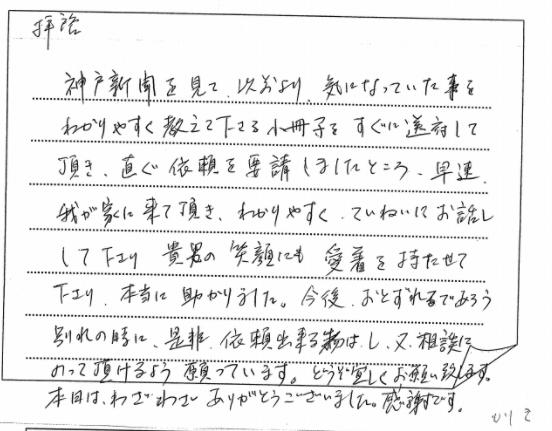 拝啓
神戸新聞を見て、以前より、気になっていた事を
わかりやすく教えて下さる小冊子をすぐに送付して
頂き、直ぐ依頼を要請しましたところ、早速、
我が家に来て頂き、わかりやすく、ていねいにお話し
して下さり 貴男の笑顔にも 愛着を持たせて
下さり、本当に助かりました。今後、おとずれるであろう
別れの時に、是非、依頼出来る物は、し、又、相談に
のって頂けるよう願っています。どうぞ宜しくお願い致します。
本日は、わざわざありがとうございました。感謝です。